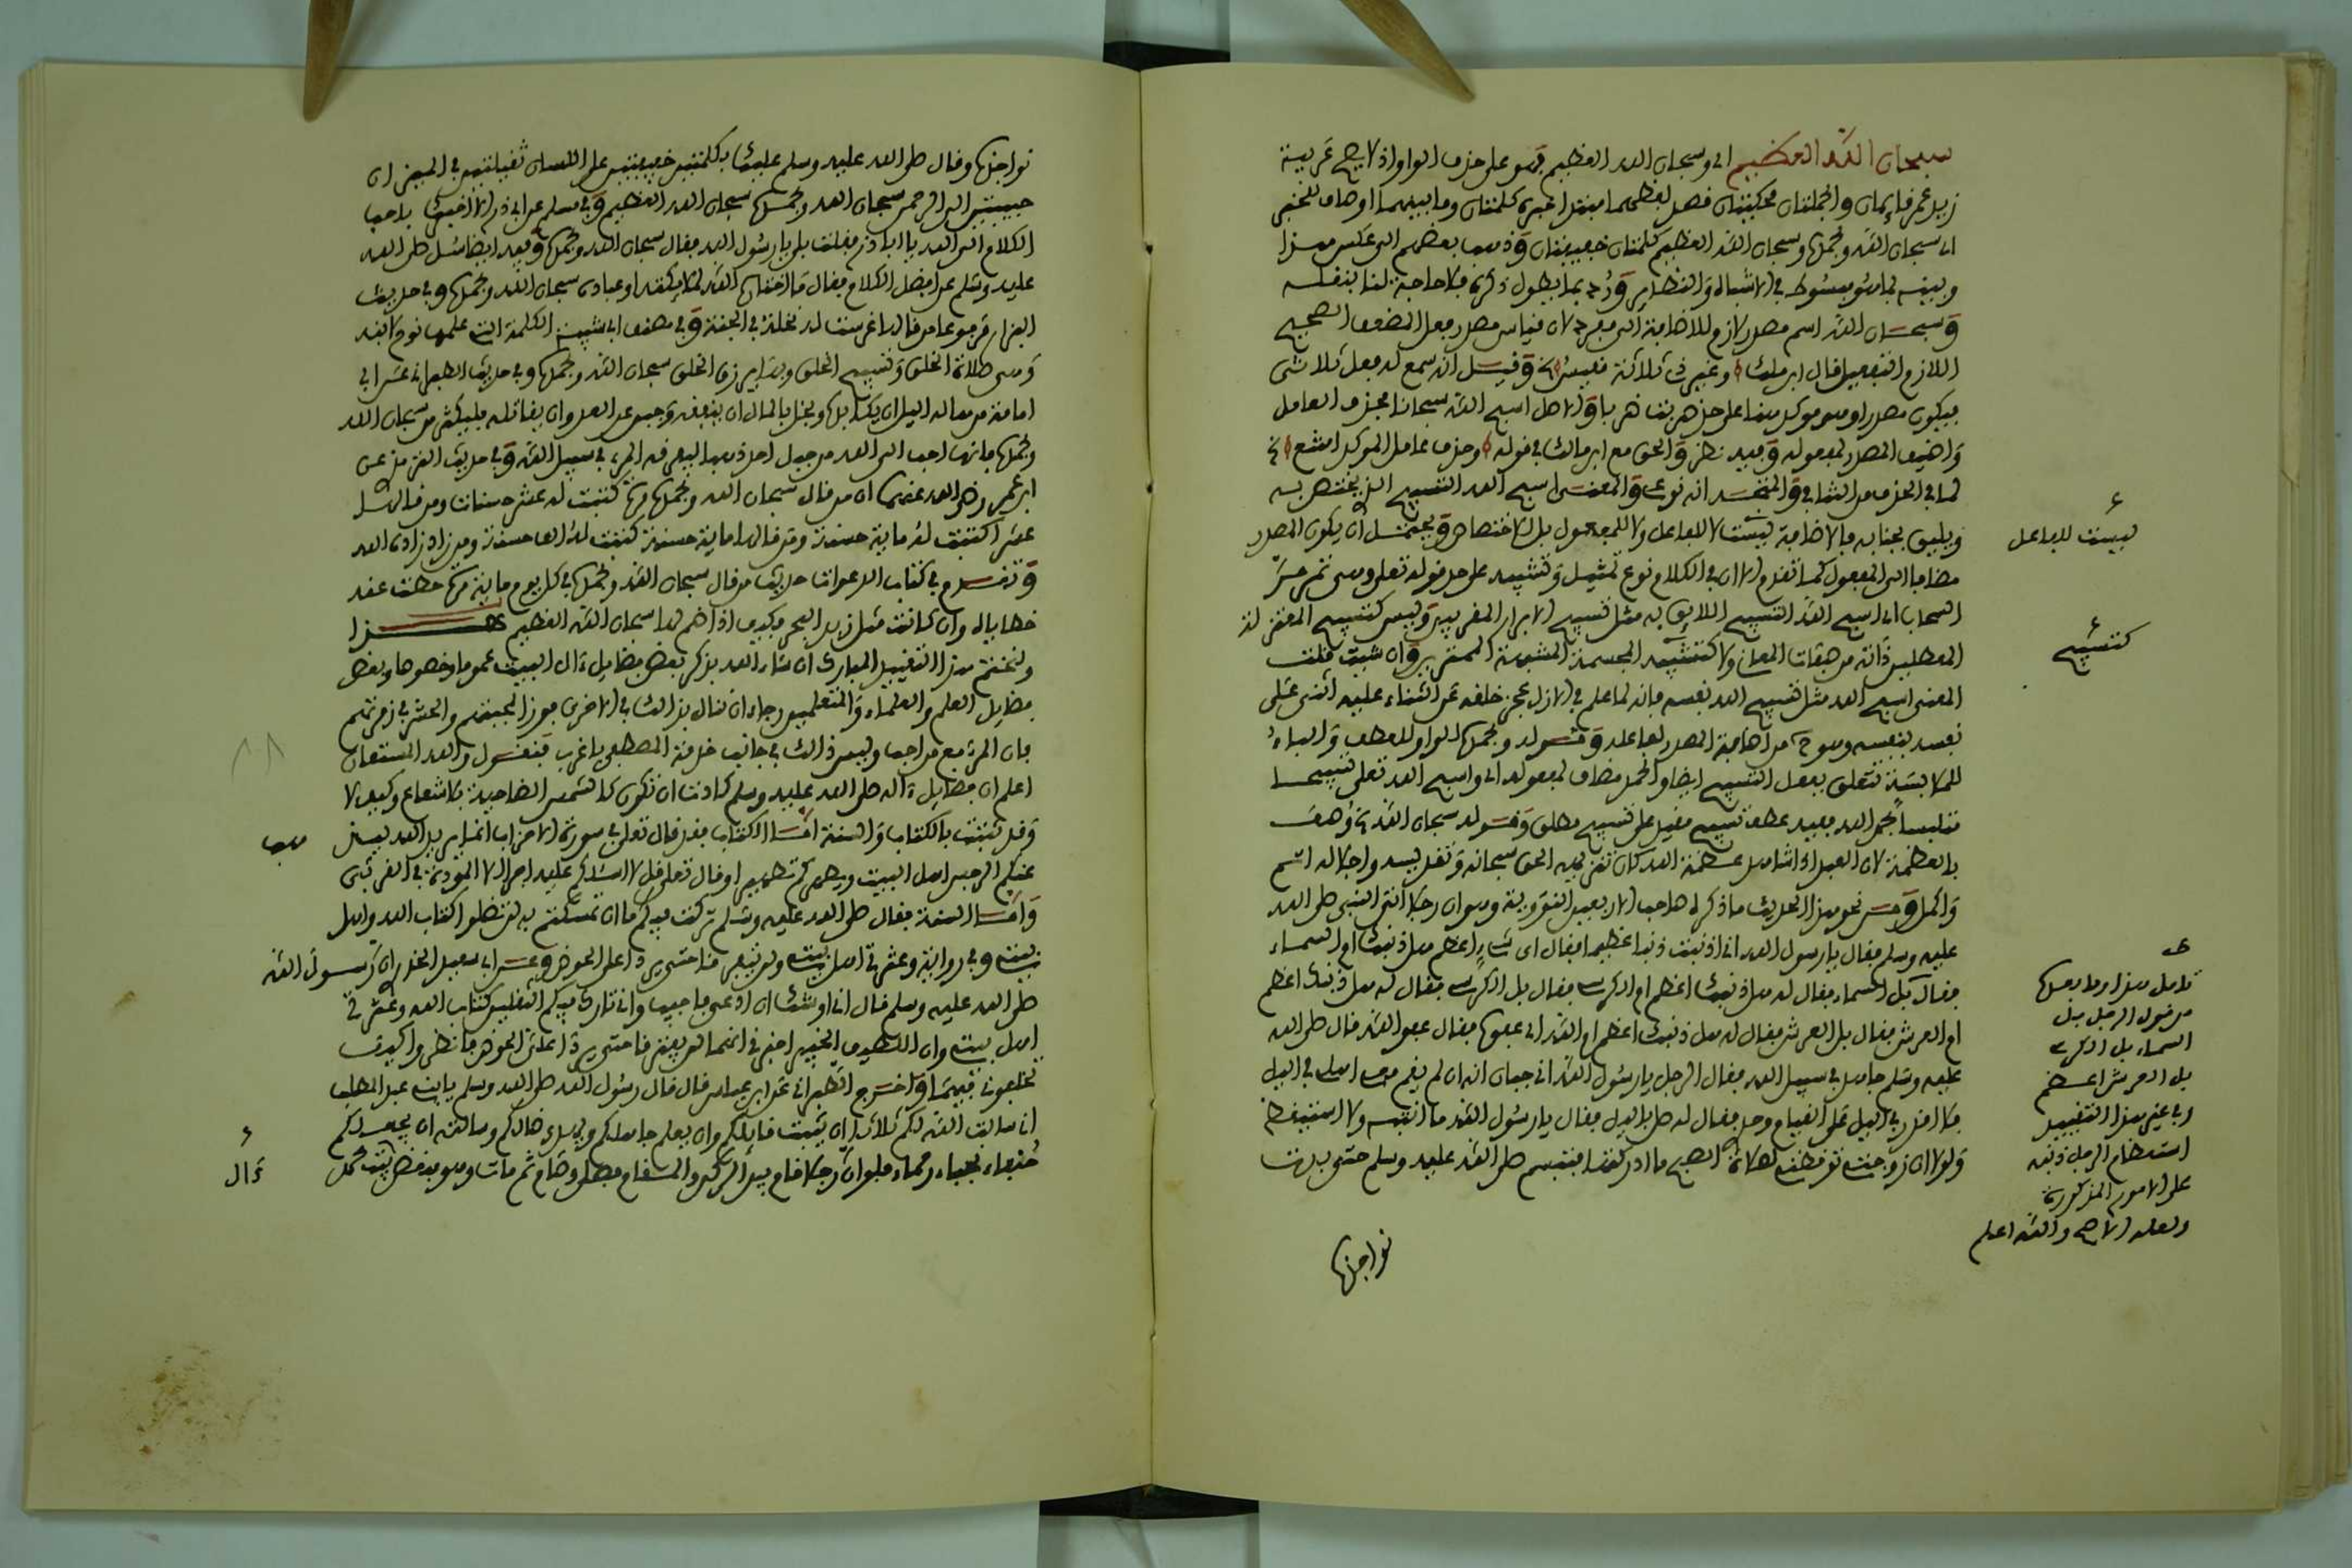 سبحان الله العظيم اي وسبحان الله العظيم فهو على حذف الواو اذ لا يصح عربية
زيد عمر قائمان والجملتان محكيتان قصد لفظهما مبتدا خبره كلمتان وما بينهما اوصاف للخبر
اي سبحان الله وبحمده وسبحان الله العظيم كلمتان خفيفتان وذهب بعضهم الى عكس هذا
وبينه بما هو مبسوط في الاشباه والنظاير ورد بما يطول ذكره فلا حاجة لنا بنقله
وسبحان الله اسم مصدر لازم للاضافة الى مفرد لان قياس مصدر فعل المضعف الصحيح
اللازم التفعيل قال ابن مالك وغير ذي ثلاثة مقيس وقيل انه سمع له فعل ثلاثي
فيكون مصدرا وهو موكد هنا على حد ضربت ضربا والاصل اسبح الله سبحانا فحذف العامل
واضيف المصدر لمعموله وفيه نظر والحق مع ابن مالك في قوله وحذف عامل الموكد امتنع
لما في الحذف من التنافي والمتجه انه نوعي والمعنى اسبح الله التسبيح الذي يختص به
ويليق بجنابه فالاضافة ليست لا للفاعل ولا للمفعول بل للاختصاص ويحتمل ان يكون المصدر
مضافا الى المفعول كما تقدم الا ان في الكلام نوع تمثيل وتشبيه على حد قوله تعالى وهي تمر مر
السحاب اي اسبح الله التسبيح اللايق به مثل تسبيح الابرار المقربين وليس كتسبيح المعتزلة
المعطلين ذاته من صفات المعاني ولا كتشبيه المجسمة المشبهة المفترين وان شيت قلت
المعنى اسبح الله مثل تسبيح الله نفسه فانه لما علم في الازل عجز خلقه عن الثناء عليه اثنى على
نفسه بنفسه وهو من اضافة المصدر لفاعله وقوله وبحمده الواو للعطف والباء
للملابسة تتعلق بفعل التسبيح ايضا والحمد مضاف لمفعوله اي واسبح الله تعالى تسبيحا
متلبسا بحمد الله ففيه عطف تسبيح مقيد على تسبيح مطلق وقوله سبحان الله وصف
بالعظمة لان العبد اذا شاهد عظمة الله كان تنزيهه الحق سبحانه وتقديسه واجلاله اتم
واكمل ومن نحو هذا الحديث ما ذكره صاحب الاربعين النووية وهو ان رجلا اتى النبي صلى الله
عليه وسلم فقال يا رسول الله اني اذنبت ذنبا عظيما فقال اي شيء اعظم هل ذنبك ام السماء
فقال بل السماء فقال له هل ذنبك اعظم ام الكرسي فقال بل الكرسي فقال له هل ذنبك اعظم
ام العرش فقال بل العرش فقال له هل ذنبك اعظم ام الله اي عفوه فقال عفو الله قال صلى الله
عليه وسلم جاهد في سبيل الله فقال الرجل يا رسول الله اني جبان انه ان لم يقم معي اهلي في الليل
فلا اقدر في الليل على القيام وحدي فقال له صل بالليل فقال يا رسول الله ما انتبه ولا استيقظ
ولولا ان زوجتي توقظني لصلاة الصبح ما ادركتها فتبسم صلى الله عليه وسلم حتى بدت
ليست للفاعل
كتسبيح
تامل هذا وما بعده
من قول الرجل بل
السماء بل الكرسي
بل العرش اعظم
وفي غير هذا التقييد
استعظام الرجل ذنبه
على الامور المذكورة
ولعله الاصح والله اعلم
نواجذه
نواجذه وقال صلى الله عليه وسلم عليك بكلمتين خفيفتين على اللسان ثقيلتين في الميزان
حبيبتين الى الرحمن سبحان الله وبحمده سبحان الله العظيم وفي مسلم عن ابي ذر الا اخبرك باحب
الكلام الى الله يا ابا ذر فقلت بلى يا رسول الله فقال سبحان الله وبحمده وفيه ايضا سئل صلى الله
عليه وسلم عن افضل الكلام فقال ما اختاره الله لملايكته او عباده سبحان الله وبحمده وفي حديث
البزار مرفوعا من قالها غرست له نخلة في الجنة وفي مصنف ابن ابي شيبة الكلمة التي علمها نوح لابنه
وهي صلاة الخلق وتسبيح الخلق وبها يرزق الخلق سبحان الله وبحمده وفي حديث الطبراني عن ابي
امامة من هاله الليل ان يكابده وبخل بالمال ان ينفقه وجبن عن العدو ان يقاتله فليكثر من سبحان الله
وبحمده فانها احب الى الله من جبل من ذهب ينفق في سبيل الله وفي حديث الترمذي عن
ابن عمر رضي الله عنهما ان من قال سبحان الله وبحمده مرة كتبت له عشر حسنات ومن قالها
عشرا كتبت له ماية حسنة ومن قالها ماية حسنة كتبت له الف حسنة ومن زاد زاده الله
وتقدم في كتاب الدعوات حديث من قال سبحان الله وبحمده في كل يوم ماية مرة حطت عنه
خطاياه وان كانت مثل زبد البحر فكيف اذا ضم لها سبحان الله العظيم هذا
ولنختم هذا التقييد المبارك ان شاء الله بذكر بعض فضايل ءال البيت عموما وخصوصا وبعض
فضايل العلم والعلماء والمتعلمين رجاء ان ننال بذلك في الاخرى فوز المحبتهم والحشر في زمرتهم
فان المرء مع من احب وليس ذلك في جانب حرمة المصطفى باغرب فنقول والله المستعان
اعلم ان فضايل ءاله صلى الله عليه وسلم كادت ان تكون كالشمس الضاحية بلا شعاع وكيف لا
وقد ثبتت بالكتاب والسنة اما الكتاب فقد قال تعالى في سورة الاحزاب انما يريد الله ليذهب
عنكم الرجس اهل البيت ويطهركم تطهيرا وقال تعالى قل لا اسئلكم عليه اجرا الا المودة في القربى
واما السنة فقال صلى الله عليه وسلم تركت فيكم ما ان تمسكتم به لن تضلوا كتاب الله واهل
بيتي وفي رواية وعترتي اهل بيتي ولن يتفرقا حتى يردا على الحوض وعن ابي سعيد الخدري ان رسول الله
صلى الله عليه وسلم قال اني اوشك ان ادعى فاجيب واني تارك فيكم الثقلين كتاب الله وعترتي
اهل بيتي وان اللطيف الخبير اخبرني انهما لن يفترقا حتى يردا علي الحوض فانظروا كيف
تخلفوني فيهما واخرج الطبراني عن ابن عباس قال قال رسول الله صلى الله عليه وسلم يا بني عبد المطلب
اني سالت الله لكم ثلاثا ان يثبت قايلكم وان يعلم جاهلكم ويهدي ضالكم وسالته ان يجعلكم
نجباء رحماء فلو ان رجلا قام بين الركن والمقام فصلى وصام ثم مات وهو يبغض بيت محمد
ءال